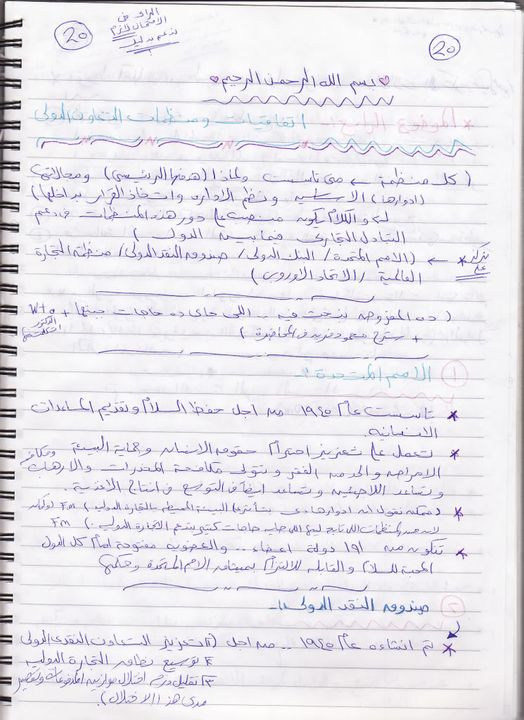 20
20
بسم الله الرحمن الرحيم
* الموضوع الرابع: اتفاقيات ومنظمات التعاون الدولى
( كل منظمة ← متى تاسست ولماذا (هدفها الرئيسى) ومجالاتها
(ادوارها) الاساسيه ونظم الاداره واتخاذ القرار بداخلها )
الكلام يكون منصب على دور هذه المنظمات فى دعم
التبادل التجارى فيما بين الدول )
* ← (الامم المتحدة / البنك الدولى / صندوق النقد الدولى / منظمة التجارة
العالمية / الاتحاد الاوروبى )
( ده المفروض ندخل فيه .. اللى جاى ده حاجات منها + WTO
+ شرح محمود فريد فى المحاضرة )
1 الامم المتحدة :-
* تاسست عام ١٩٤٥ من اجل حفظ السلام وتقديم المساعدات
الانسانيه.
* تعمل على تعزيز احترام حقوق الانسان وحماية البيئة
الامراض والحد من الفقر وتتولى مكافحة المخدرات والارهاب
وتساعد اللاجئين وتساعد فى التوسع فى انتاج الاغذية.
* (ممكن نقول ان ادوارها دى بتأثر على البيئة المحيطه بالتجارة الدوليه)
لان المنظمات التابعة ليها حاجات كتير بتدعم التجارة الدوليه )
* تتكون من ١٩١ دولة اعضاء .. والعضويه مفتوحة امام كل الدول
المحبة للسلام والقابله للالتزام بميثاق الامم المتحدة وحكمها
2 صندوق النقد الدولى :-
* تم انشاءه عام ١٩٤٥ .. من اجل (١ تعزيز التعاون النقدى الدولى
٢ توسيع نطاق التجارة الدوليه
٣ تقليل درجة اختلال موازين المدفوعات وتقصير
مدى هذا الاختلال ).